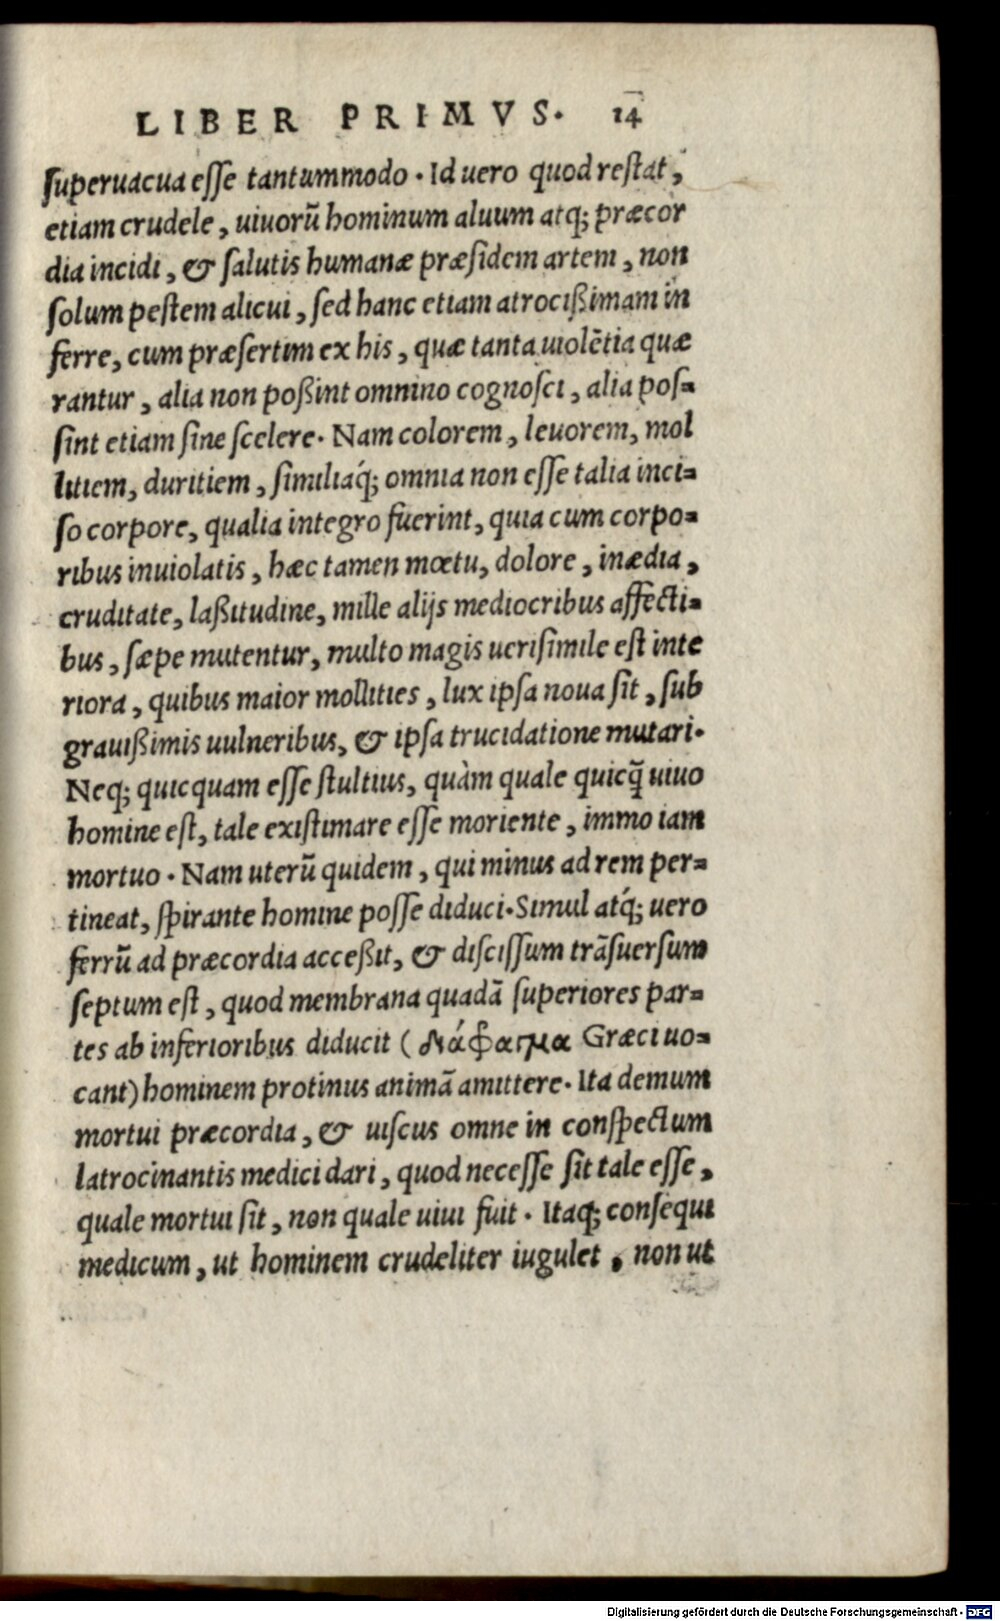 LIBER PRIMVS. 14
ſuperuacua eſſe tantummodo. Id uero quod reſtat,
etiam crudele, uiuorū hominum aluum atq; præcor
dia incidi, & ſalutis humanæ præſidem artem, non
ſolum peſtem alicui, ſed hanc etiam atrocißimam in
ferre, cum præſertim ex his, quæ tanta uiolētia quæ
rantur, alia non poßint omnino cognoſci, alia poſ=
ſint etiam ſine ſcelere. Nam colorem, leuorem, mol
litiem, duritiem, ſimiliaq́; omnia non eſſe talia inci=
ſo corpore, qualia integro fuerint, quia cum corpo=
ribus inuiolatis, hæc tamen mœtu, dolore, inædia,
cruditate, laßitudine, mille alijs mediocribus affecti=
bus, ſæpe mutentur, multo magis ueriſimile eſt inte
riora, quibus maior mollities, lux ipſa noua ſit, ſub
grauißimis uulneribus, & ipſa trucidatione mutari.
Neq; quicquam eſſe ſtultius, quàm quale quicq̃ uiuo
homine eſt, tale exiſtimare eſſe moriente, immo iam
mortuo. Nam uterū quidem, qui minus ad rem per=
tineat, ſpirante homine poſſe diduci. Simul atq́; uero
ferrū ad præcordia acceßit, & diſciſſum trāſuerſum
ſeptum eſt, quod membrana quadā ſuperiores par=
tes ab inferioribus diducit (διάφραγμα Græci uo=
cant) hominem protinus animā amittere. Ita demum
mortui præcordia, & uiſcus omne in conſpectum
latrocinantis medici dari, quod neceſſe ſit tale eſſe,
quale mortui ſit, non quale uiui fuit. Itaq; conſequi
medicum, ut hominem crudeliter iugulet, non ut
Digitalisierung gefördert durch die Deutsche Forschungsgemeinschaft - DFG